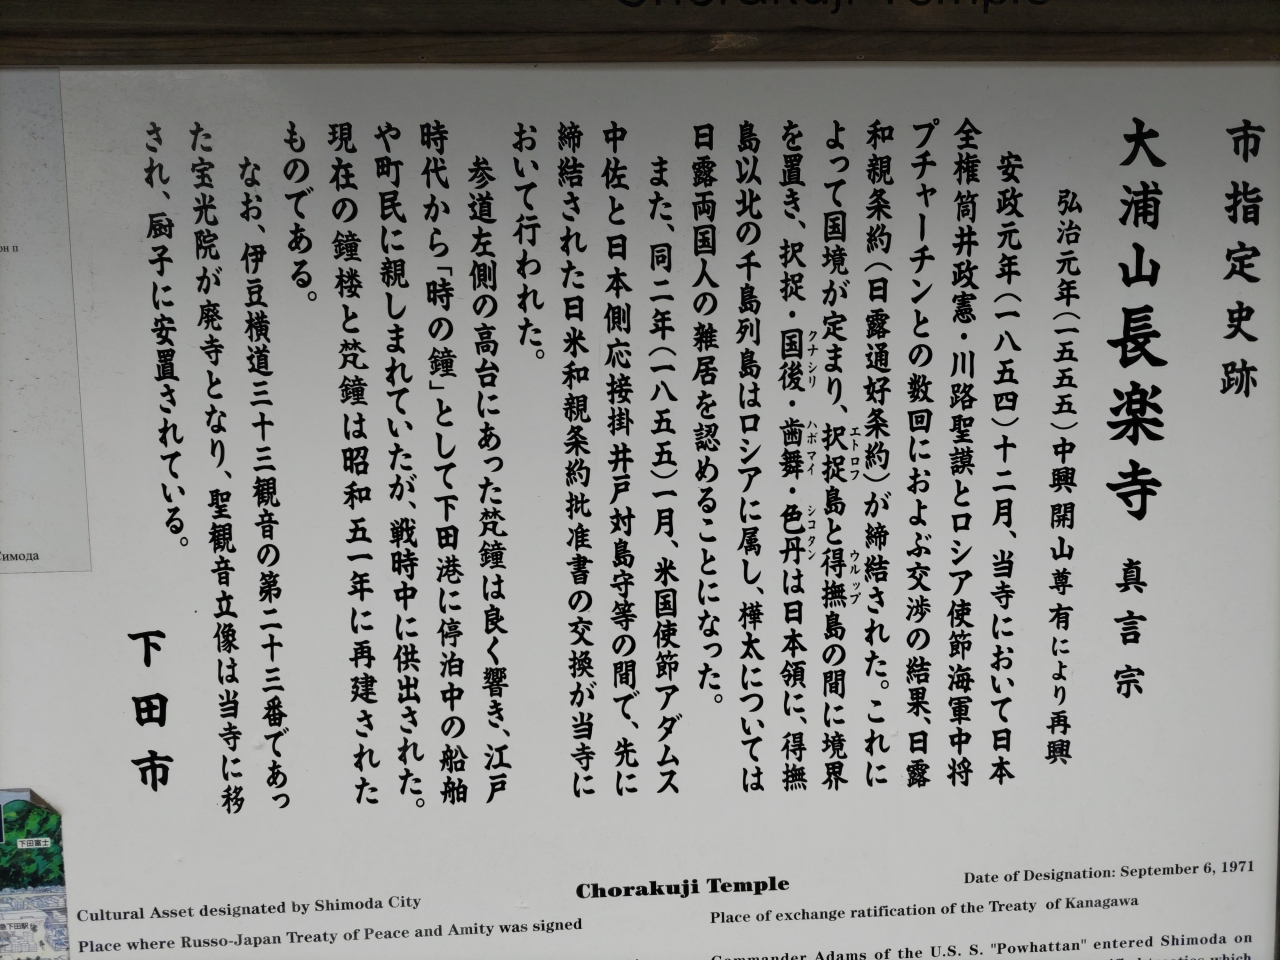 Chorakuji Temple
市指定史跡
大浦山長楽寺 真言宗
弘治元年(一五五五)中興開山尊有により再興
安政元年(一八五四)十二月、当寺において日本
全権筒井政憲・川路聖謨とロシア使節海軍中将
プチャーチンとの数回におよぶ交渉の結果、日露
和親条約(日露通好条約)が締結された。これに
よって国境が定まり、択捉島と得撫島の間に境界
エトロフ ウルップ
を置き、択捉・国後・歯舞・色丹は日本領に、得撫
クナシリ ハボマイ シコタン
島以北の千島列島はロシアに属し、樺太については
日露両国人の雑居を認めることになった。
また、同二年(一八五五)一月、米国使節アダムス
中佐と日本側応接掛井戸対島守等の間で、先に
締結された日米和親条約批准書の交換が当寺に
おいて行われた。
参道左側の高台にあった梵鐘は良く響き、江戸
時代から「時の鐘」として下田港に停泊中の船舶
や町民に親しまれていたが、戦時中に供出された。
現在の鐘楼と梵鐘は昭和五一年に再建された
ものである。
なお、伊豆横道三十三観音の第二十三番であっ
た宝光院が廃寺となり、聖観音立像は当寺に移
され、厨子に安置されている。
下田市
Симода
下田富士
下田駅
Chorakuji Temple
Date of Designation: September 6, 1971
Cultural Asset designated by Shimoda City
Place where Russo-Japan Treaty of Peace and Amity was signed
Place of exchange ratification of the Treaty of Kanagawa
Commander Adams of the U.S. S. "Powhattan" entered Shimoda on
which